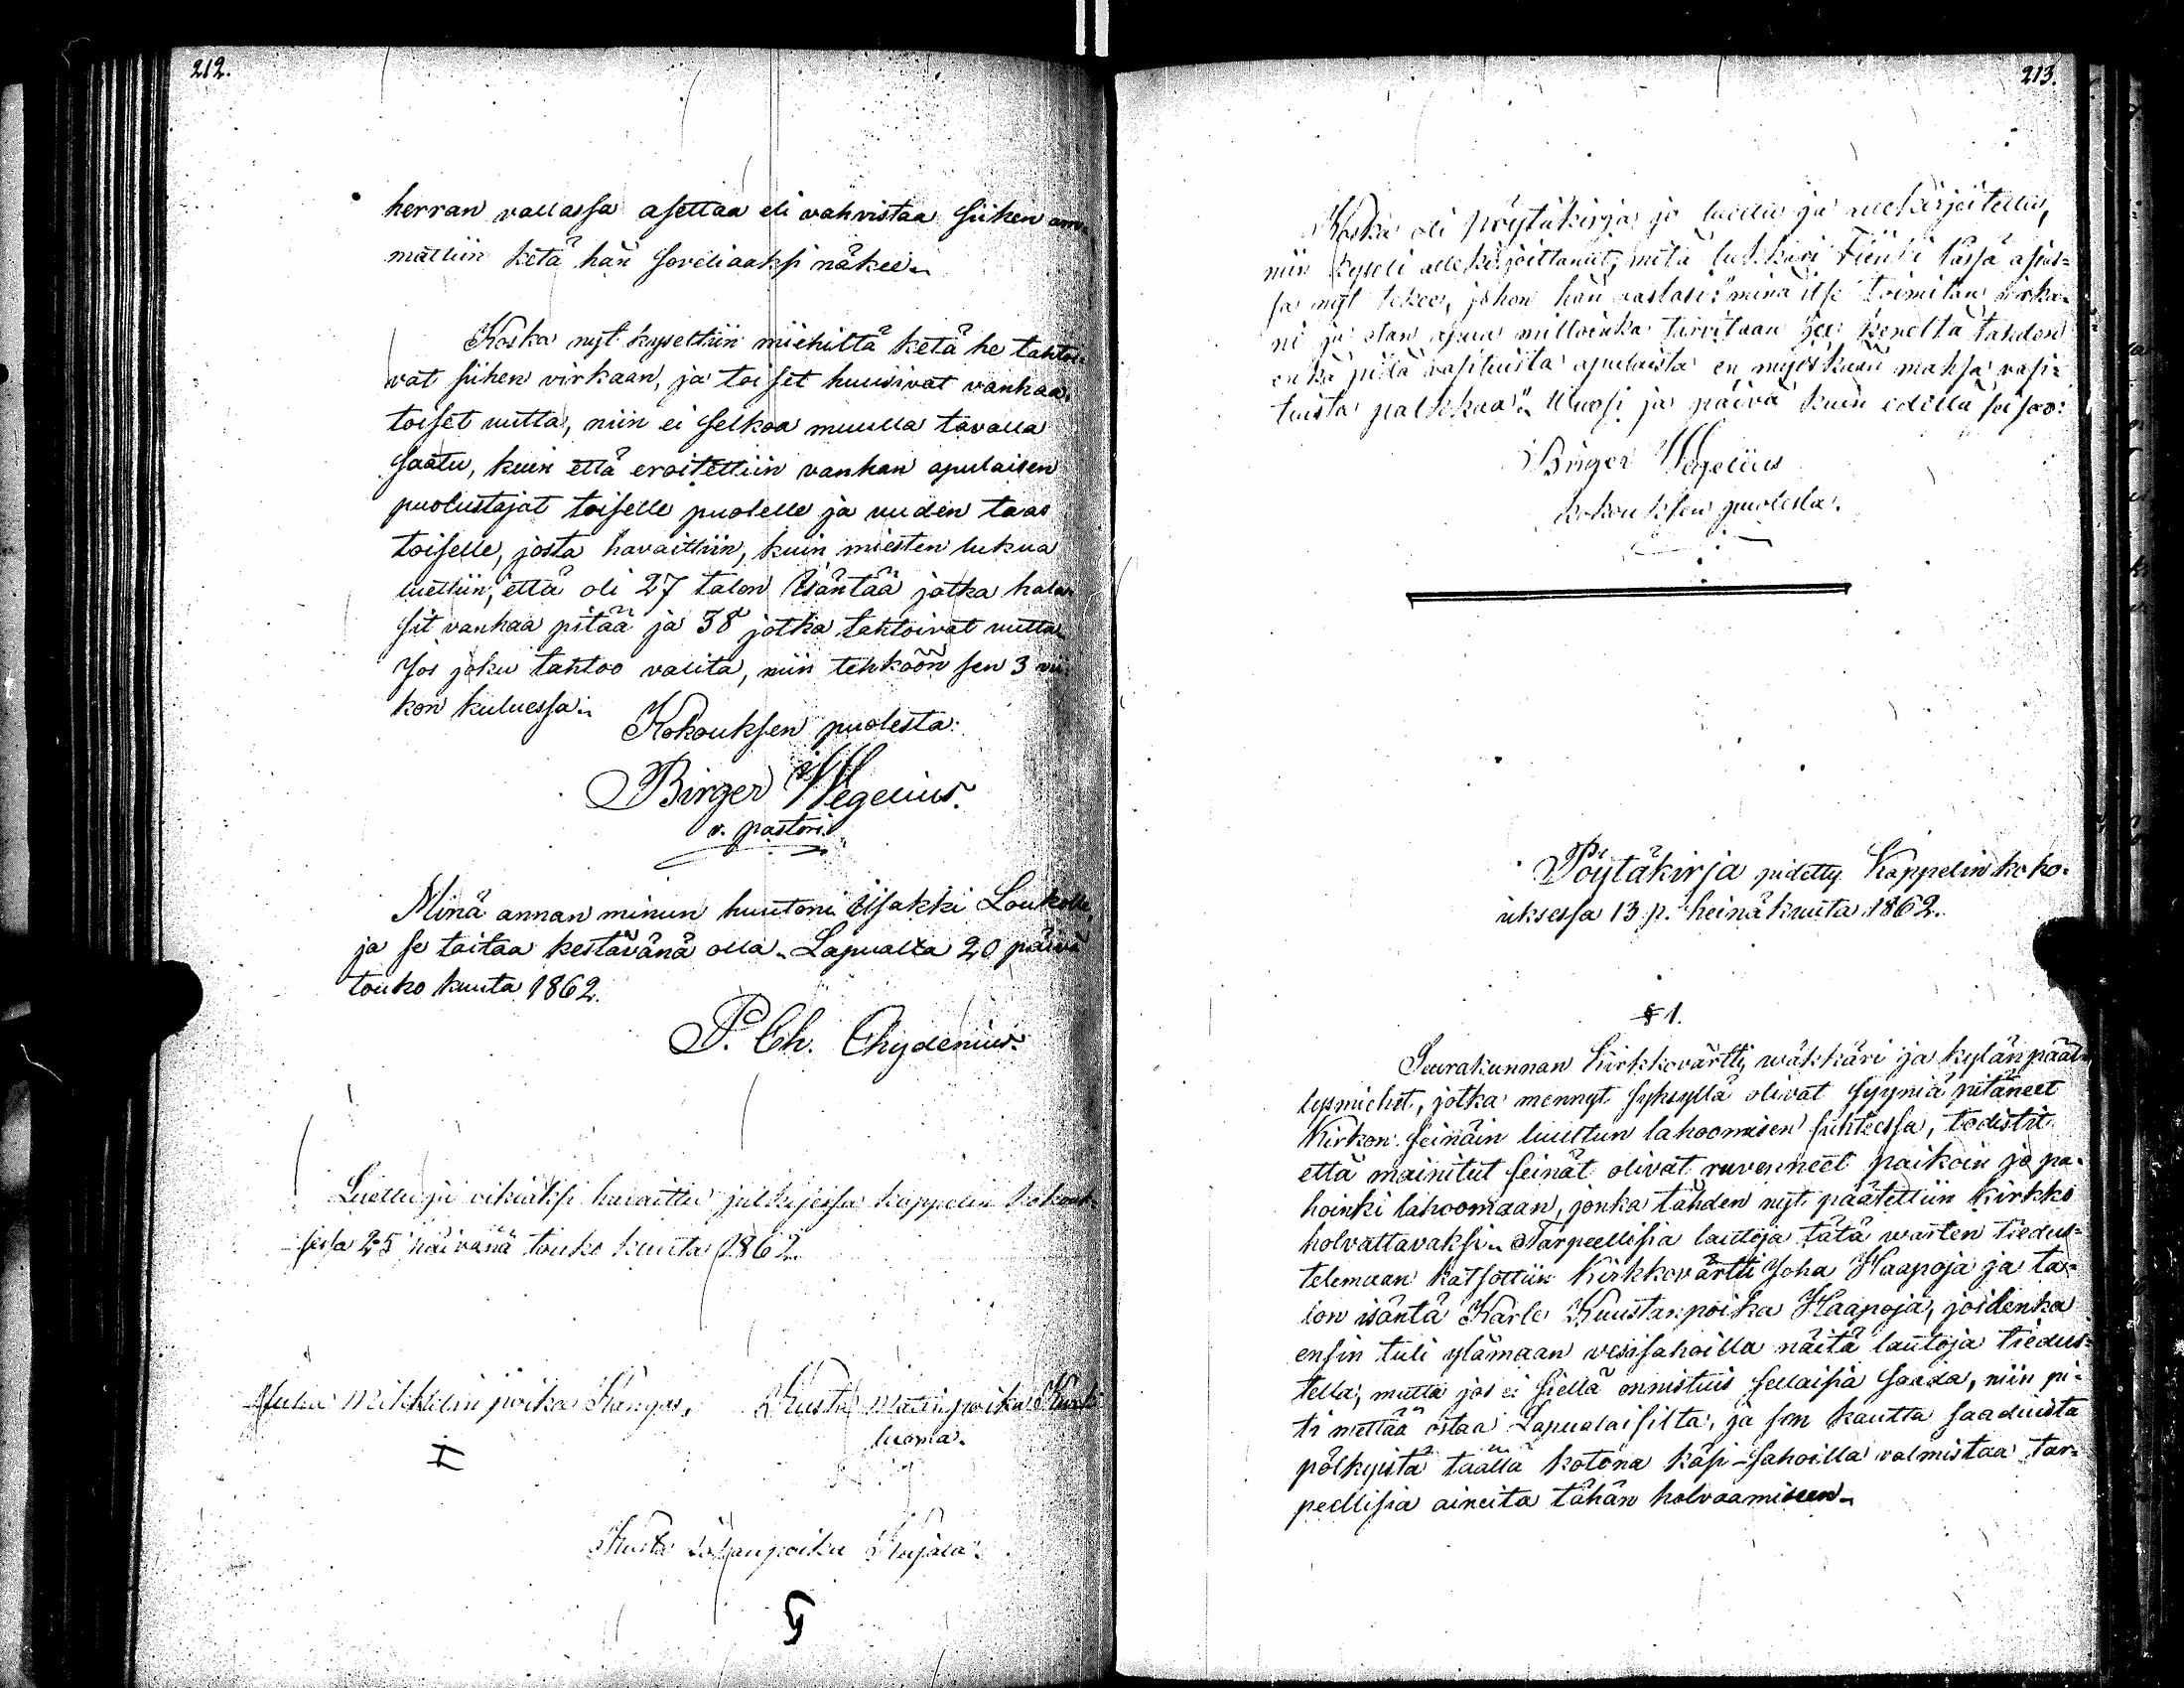 212.
herran vallassa asettaa eli vahvistaa siihen am-
mattiin ketä hän soveliaaksi näkee.
Koska nyt kyseltiin miehiltä ketä he tahtoi-
vat siihen virkaan, ja toiset huusivat vanhaa,
toiset uutta, niin ei selkoa muulla tavalla
saatu, kuin että eroitettiin vanhan apulaisen
puolustajat toiselle puolelle ja uuden taas
toiselle, josta havaittiin, kuin miesten lukua
luettiin, että oli 27 talon isäntää jotka halu-
sit vanhaa pitää ja 38 jotka tahtoivat uutta.
Jos joku tahtoo valita, niin tehköön sen 3 vii-
kon kuluessa.
Kokouksen puolesta:
Birger Wegelius.
v. pastori.
Minä annan minun huutoni Iisakki Loukolle,
ja se taitaa kestävänä olla. Lapualta 20 päivä
touko kuuta 1862.
P. Ch. Chydenius.
Luettu ja oikiaksi havaittu julkisessa kappelin kokouk-
sessa 25 päivänä touko kuuta 1862.
Juha Mikkelin poika Kangas, Kusta Matin poika
luoma.
Kusta poika
213.
Koska oli pöytäkirja jo luettu ja allekirjoitettu,
niin kyseli allekirjoittanut, mitä lukkari tässä asias-
sa nyt tekee, johon hän vastasi: "minä itse toimitan virka-
ni ja otan apua milloinka tarvitaan keneltä tahdon
enkä pidä vasituista apulaista en myöskään maksa vasi-
tuista palkkaa". Vuosi ja päivä kuin edellä seisoo:
Birger Wegelius
kokouksen puolesta.
Pöytäkirja pidetty Kappelin koko-
uksessa 13 p. heinäkuuta 1862.
§ 1.
Seurakunnan Kirkkovärtti, wäkkäri ja kylänpääl-
lysmiehet, jotka mennyt syksyllä olivat syyniä pitäneet
Kirkon seinäin luullun lahoomisen suhteessa, todistit
että mainitut seinät olivat ruvenneet paikoin jo pa-
hoinki lahoomaan, jonka tähden nyt päätettiin kirkko
holvattavaksi. Tarpeellisia lautoja tätä warten tiedus-
telemaan katsottiin Kirkkovärtti Joha Haapoja ja ta-
lon isäntä Karle Kuustanpoika Haapoja, joidenka
ensin tuli ylämaan vesisahoilla näitä lautoja tiedus-
tella, mutta jos ei siellä onnistuis sellaisia saada, niin pi-
ti mettää ostaa Lapualaisilta, ja sen kautta saaduista
pölkyistä täällä kotona käsi-sahoilla valmistaa tar-
peellisia aineita tähän holvaamiseen.